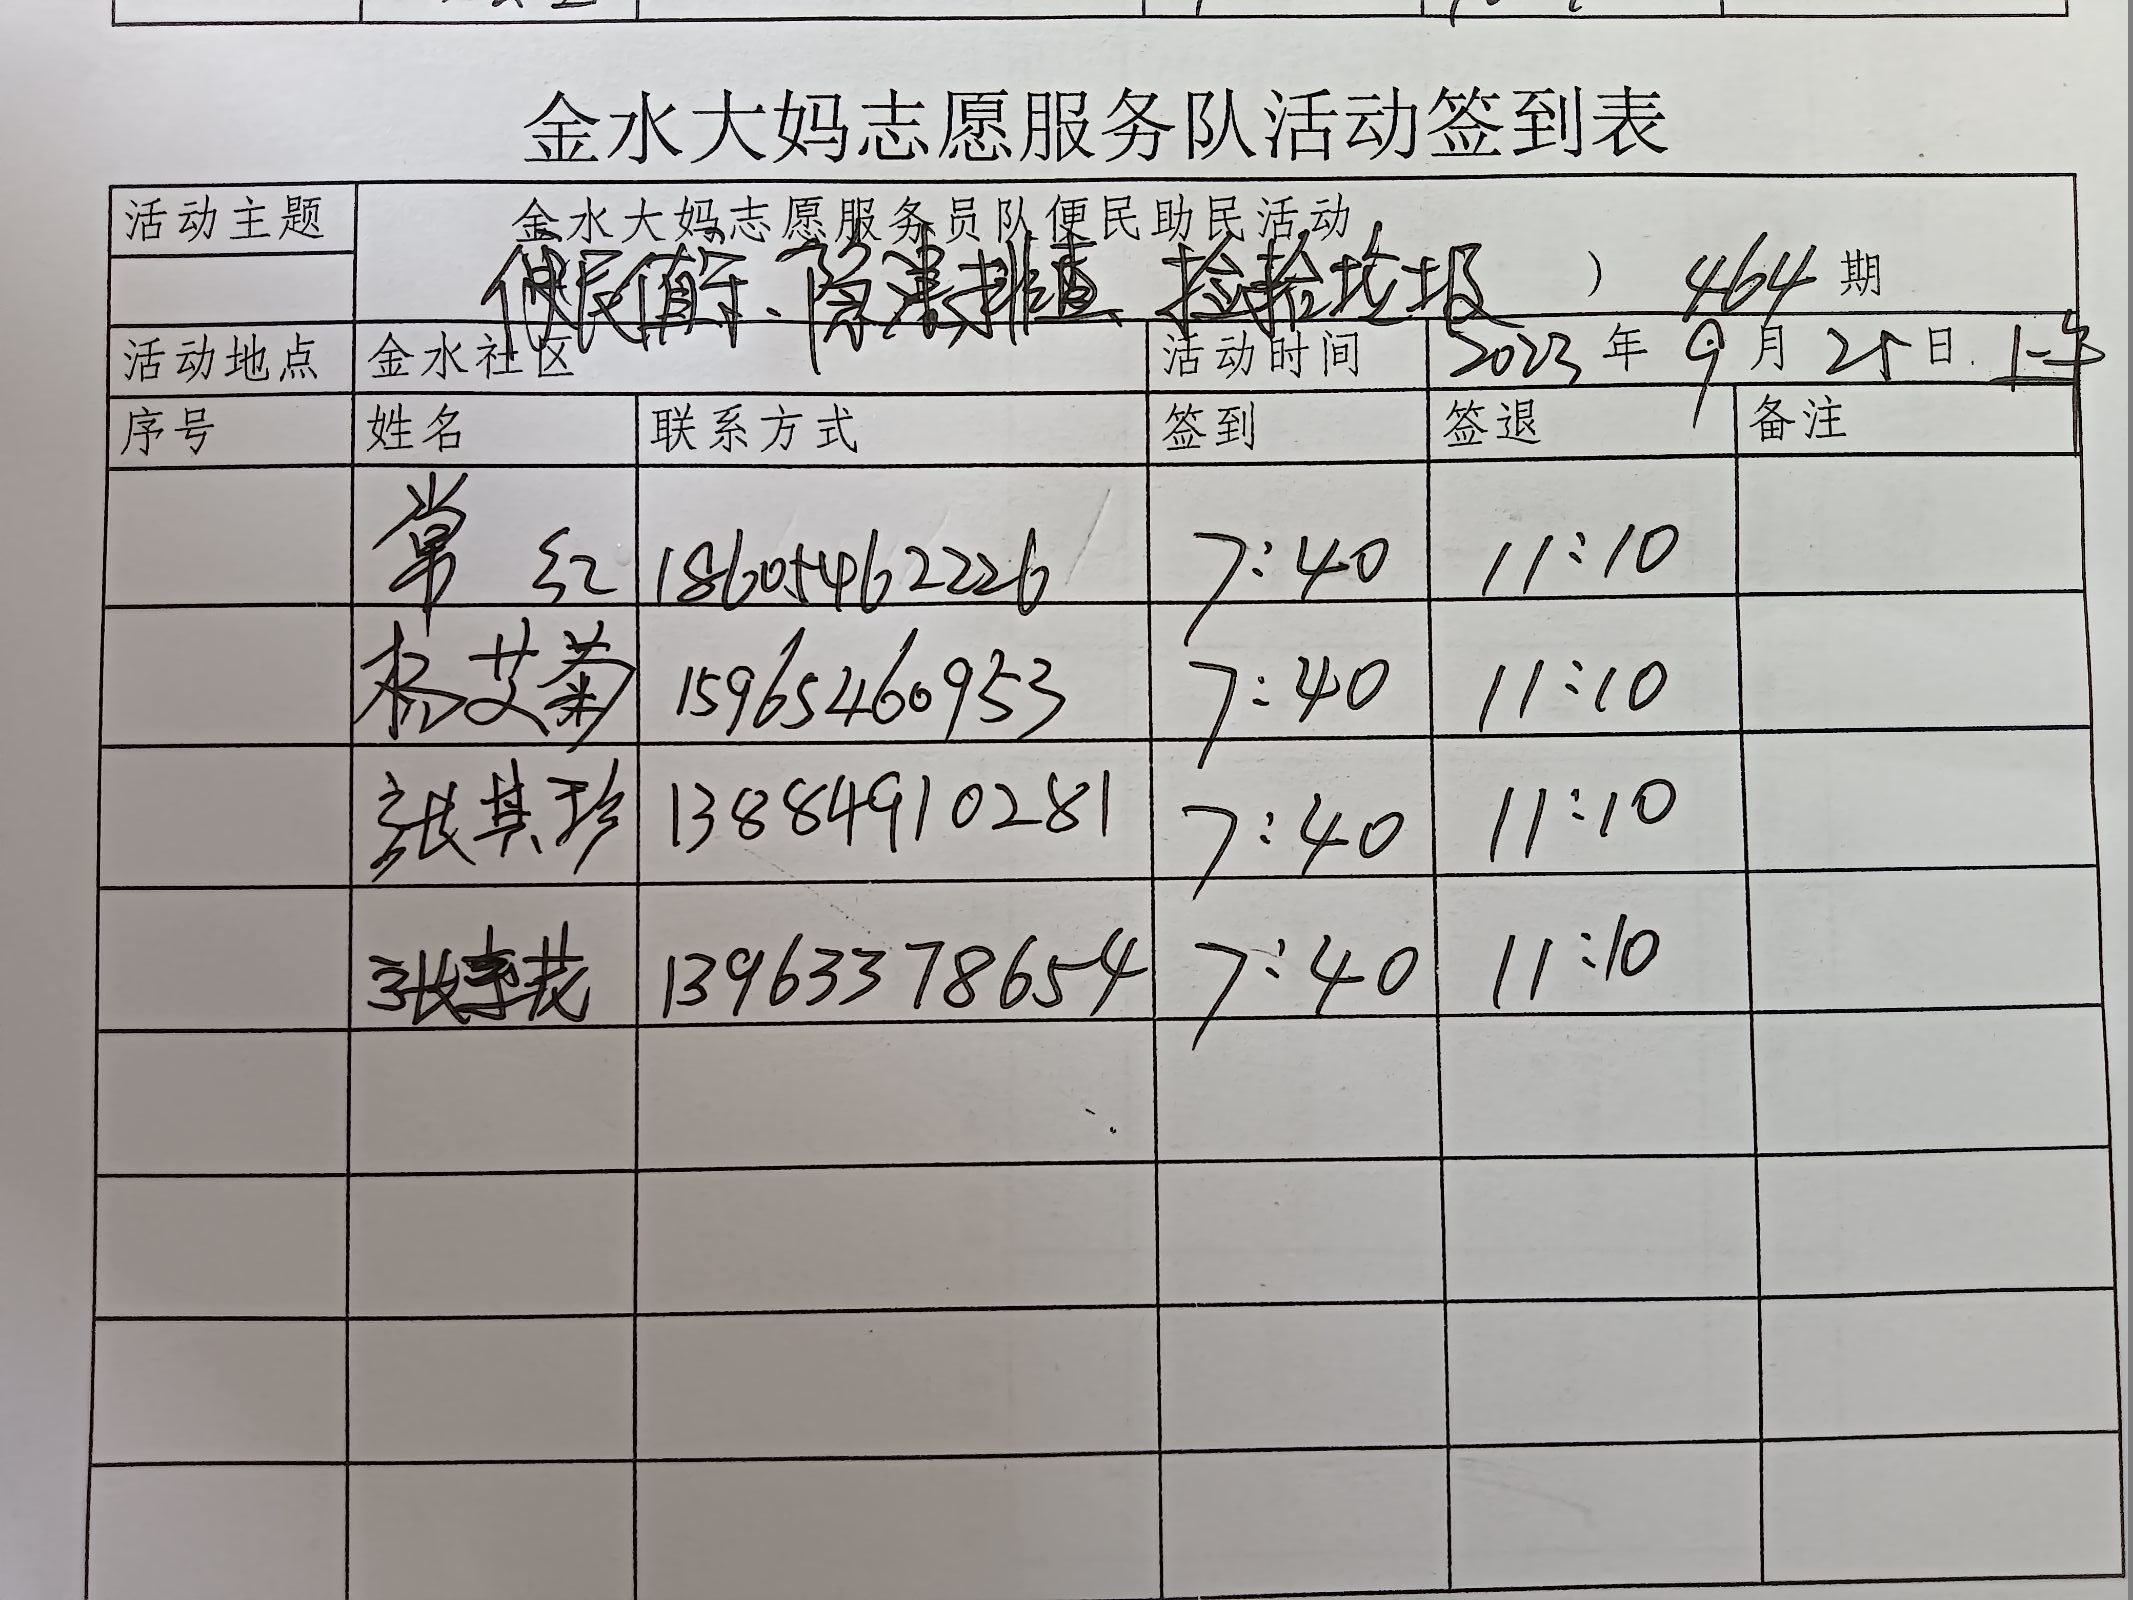 金水大妈志愿服务队活动签到表
活动主题 金水大妈志愿服务员队便民助民活动
便民值守、隐患排查 捡拾垃圾 ） 464期
活动地点 金水社区 活动时间 2023年9月25日
序号 姓名 联系方式 签到 签退 备注
常红 18605462226 7:40 11:10
杨艾菊 15965460953 7:40 11:10
张其珍 13884910281 7:40 11:10
张 13963378654 7:40 11:10